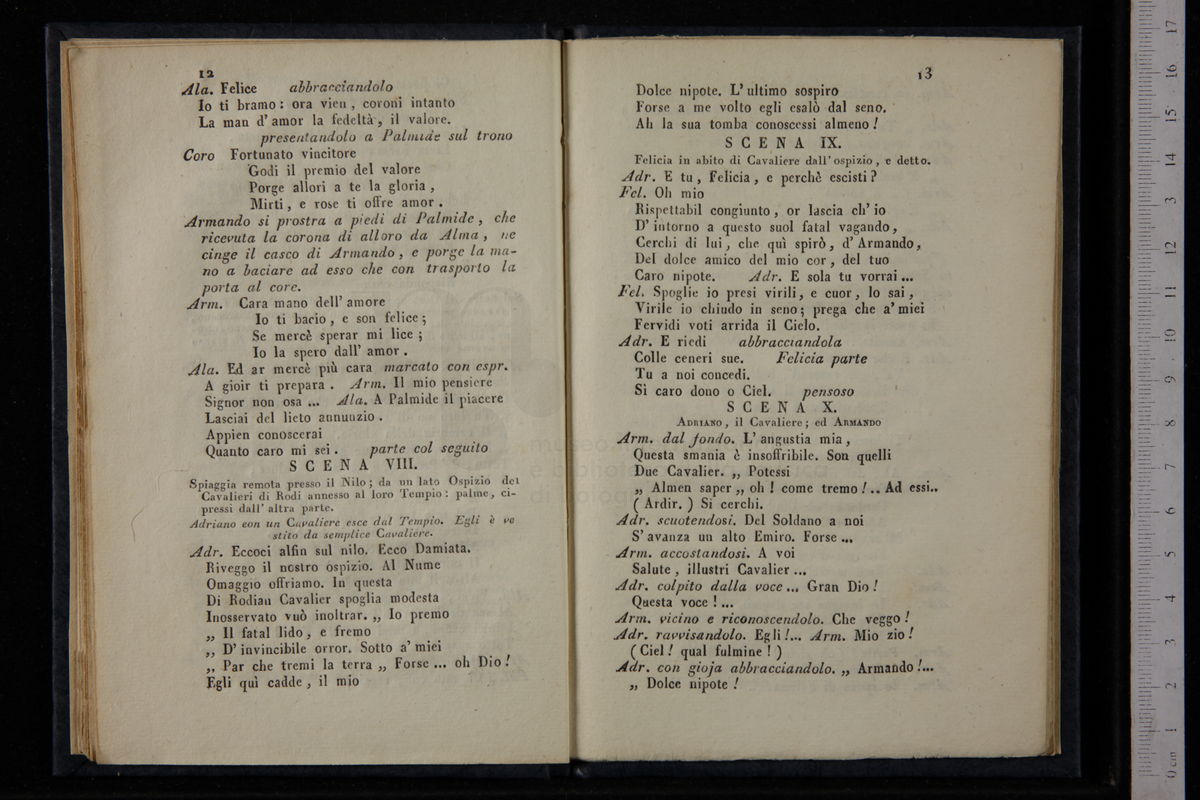 12
Ala. Felice abbracciandolo
Io ti bramo: ora vien, coroni intanto
La man d'amor la fedeltà, il valore.
presentandolo a Palmide sul trono
Coro Fortunato vincitore
Godi il premio del valore
Porge allori a te la gloria,
Mirti, e rose ti offre amor.
Armando si prostra a piedi di Palmide, che
ricevuta la corona di alloro da Alma, ne
cinge il casco di Armando, e porge la ma-
no a baciare ad esso che con trasporto la
porta al core.
Arm. Cara mano dell'amore
Io ti bacio, e son felice;
Se mercè sperar mi lice;
Io la spero dall'amor.
Ala. Ed ar mercè più cara marcato con espr.
A gioir ti prepara. Arm. Il mio pensiere
Signor non osa ... Ala. A Palmide il piacere
Lasciai del lieto annunzio.
Appien conoscerai
Quanto caro mi sei. parte col seguito
SCENA VIII.
Spiaggia remota presso il Nilo; da un lato Ospizio dei
Cavalieri di Rodi annesso al loro Tempio: palme, ci-
pressi dall'altra parte.
Adriano con un Cavaliere esce dal Tempio. Egli è ve
stito da semplice Cavaliere.
Adr. Eccoci alfin sul nilo. Ecco Damiata.
Riveggo il nostro ospizio. Al Nume
Omaggio offriamo. In questa
Di Rodian Cavalier spoglia modesta
Inosservato vuò inoltrar. „ Io premo
„ Il fatal lido, e fremo
„ D'invincibile orror. Sotto a' miei
„ Par che tremi la terra „ Forse ... oh Dio!
Egli quì cadde, il mio
13
Dolce nipote. L'ultimo sospiro
Forse a me volto egli esalò dal seno.
Ah la sua tomba conoscessi almeno!
SCENA IX.
Felicia in abito di Cavaliere dall'ospizio, e detto.
Adr. E tu, Felicia, e perchè escisti?
Fel. Oh mio
Rispettabil congiunto, or lascia ch'io
D'intorno a questo suol fatal vagando,
Cerchi di lui, che quì spirò, d'Armando,
Del dolce amico del mio cor, del tuo
Caro nipote. Adr. E sola tu vorrai ...
Fel. Spoglie io presi virili, e cuor, lo sai,
Virile io chiudo in seno; prega che a' miei
Fervidi voti arrida il Cielo.
Adr. E riedi abbracciandola
Colle ceneri sue. Felicia parte
Tu a noi concedi.
Sì caro dono o Ciel. pensoso
SCENA X.
ADRIANO, il Cavaliere; ed ARMANDO
Arm. dal fondo. L'angustia mia,
Questa smania è insoffribile. Son quelli
Due Cavalier. „ Potessi
„ Almen saper „ oh! come tremo!.. Ad essi..
(Ardir.) Si cerchi.
Adr. scuotendosi. Del Soldano a noi
S'avanza un alto Emiro. Forse ...
Arm. accostandosi. A voi
Salute, illustri Cavalier ...
Adr. colpito dalla voce ... Gran Dio!
Questa voce! ...
Arm. vicino e riconoscendolo. Che veggo!
Adr. ravvisandolo. Egli!... Arm. Mio zio!
(Ciel! qual fulmine!)
Adr. con gioja abbracciandolo. „ Armando!...
„ Dolce nipote!